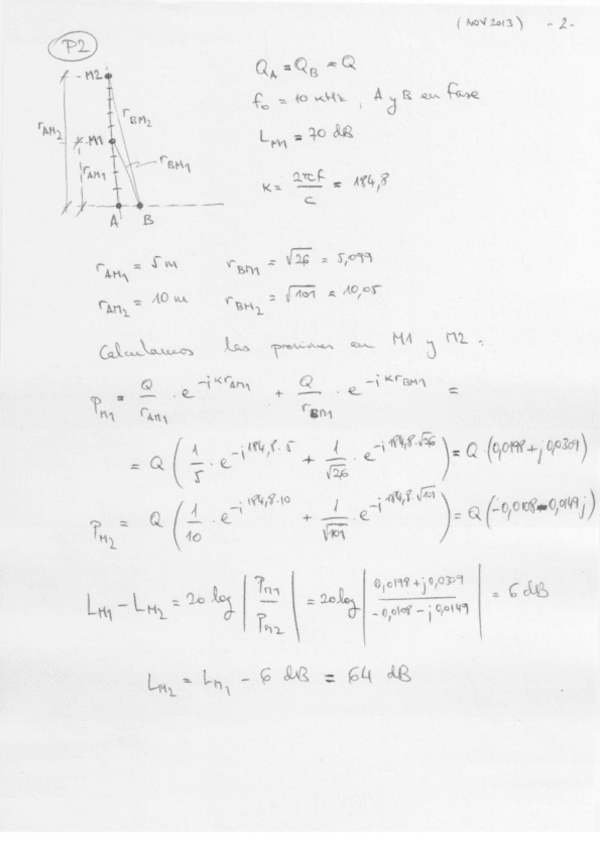 (NOV 2013) -2-
P2
M2
r_AM2
r_BM2
M1
r_AM1
r_BM1
A B
Q_A = Q_B = Q
f_0 = 10 kHz, A y B en fase
L_M1 = 70 dB
K = 2πf/c = 184,8
r_AM1 = 5 m r_BM1 = √26 = 5,099
r_AM2 = 10 m r_BM2 = √101 = 10,05
Calculamos las presiones en M1 y M2:
P_M1 = Q/r_AM1 · e^(-i K r_AM1) + Q/r_BM1 · e^(-i K r_BM1) =
= Q (1/5 · e^(-i 184,8·5) + 1/√26 · e^(-i 184,8·√26)) = Q·(0,0198 + j 0,0309)
P_M2 = Q (1/10 · e^(-i 184,8·10) + 1/√101 · e^(-i 184,8·√101)) = Q (-0,0108 - 0,0149j)
L_M1 - L_M2 = 20 log |P_M1/P_M2| = 20 log |(0,0198 + j 0,0309)/(-0,0108 - j 0,0149)| = 6 dB
L_M2 = L_M1 - 6 dB = 64 dB